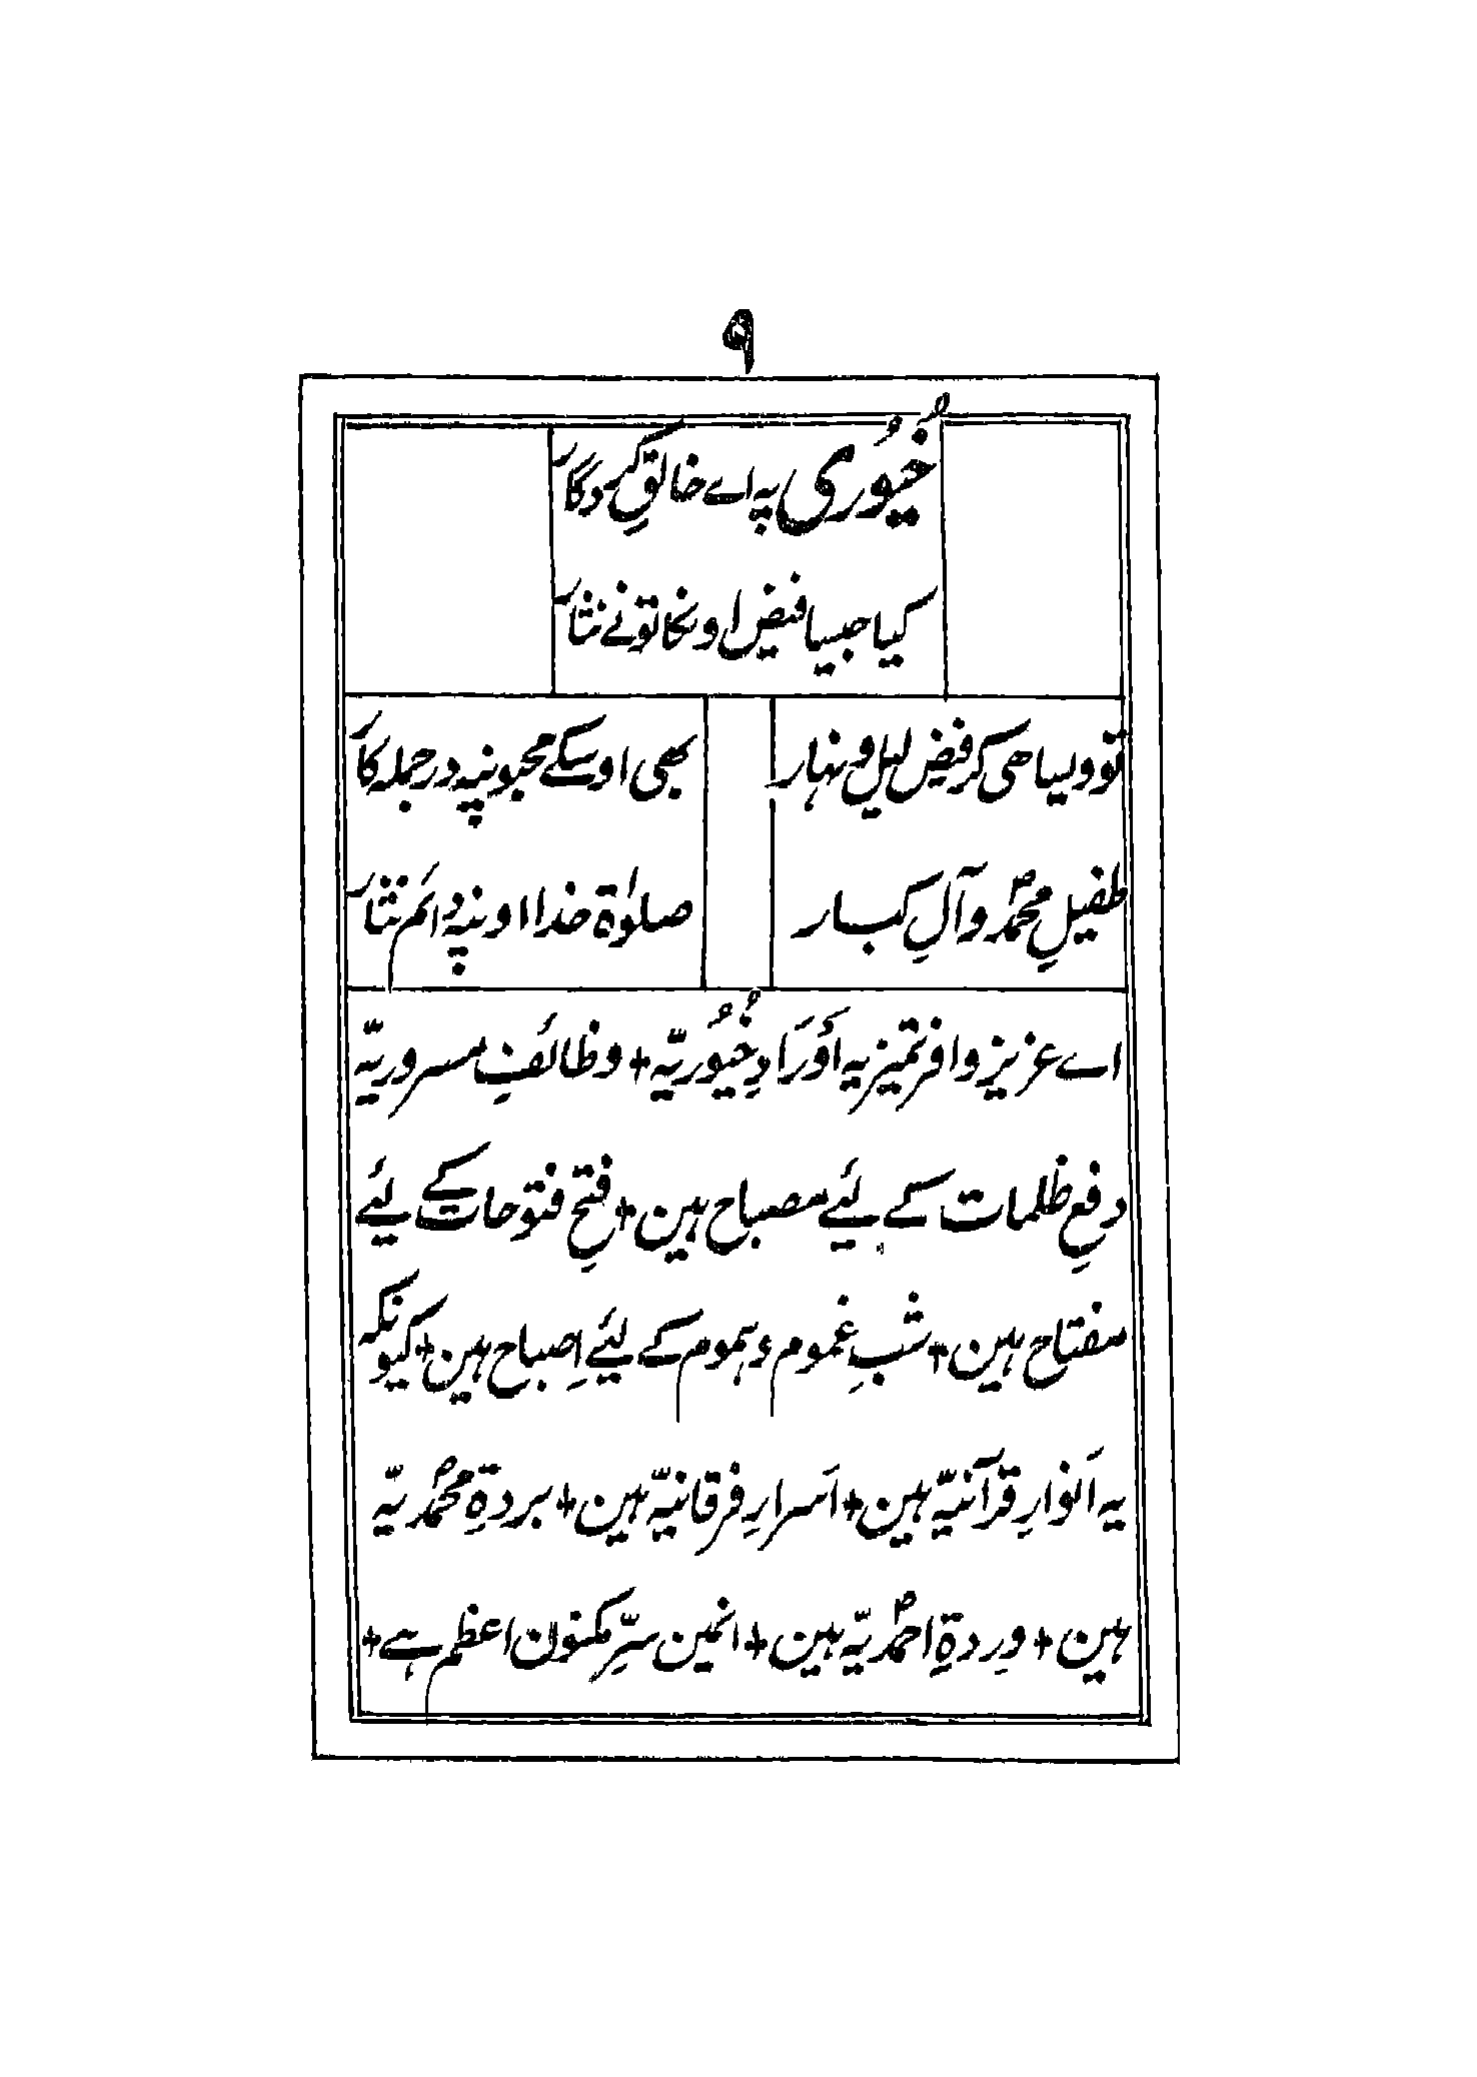 ۹
خُیُوری پہ اے خالقِ کردگار
کیا جیسا فیض اونکا تونے نثار
تو ویسا ھی کر فیض لیل و نہار
بھی اوسکے محبونپہ در جملہ کار
طفیلِ محمدؐ و آلِ کبار
صلوٰۃ خدا اونپہ دائم نثار
اے عزیز وافر تمیز یہ أورَادِ خُیُوریّہ + وظائفِ مسروریّہ
دفعِ ظلمات کے لیٔے مصباح ہین + فتحِ فتوحات کے لیٔے
مفتاح ہین + شبِ غموم و ہموم کے لیٔے اِصباح ہین + کیونکہ
یہ اَنوارِ قرآنیّہ ہین + اَسرارِ فرقانیّہ ہین + بردۃِ محمدؐیّہ
ہین + وِردۃِ احمدؐیّہ ہین + انمین سرِّ مکنون اعظم ہے +